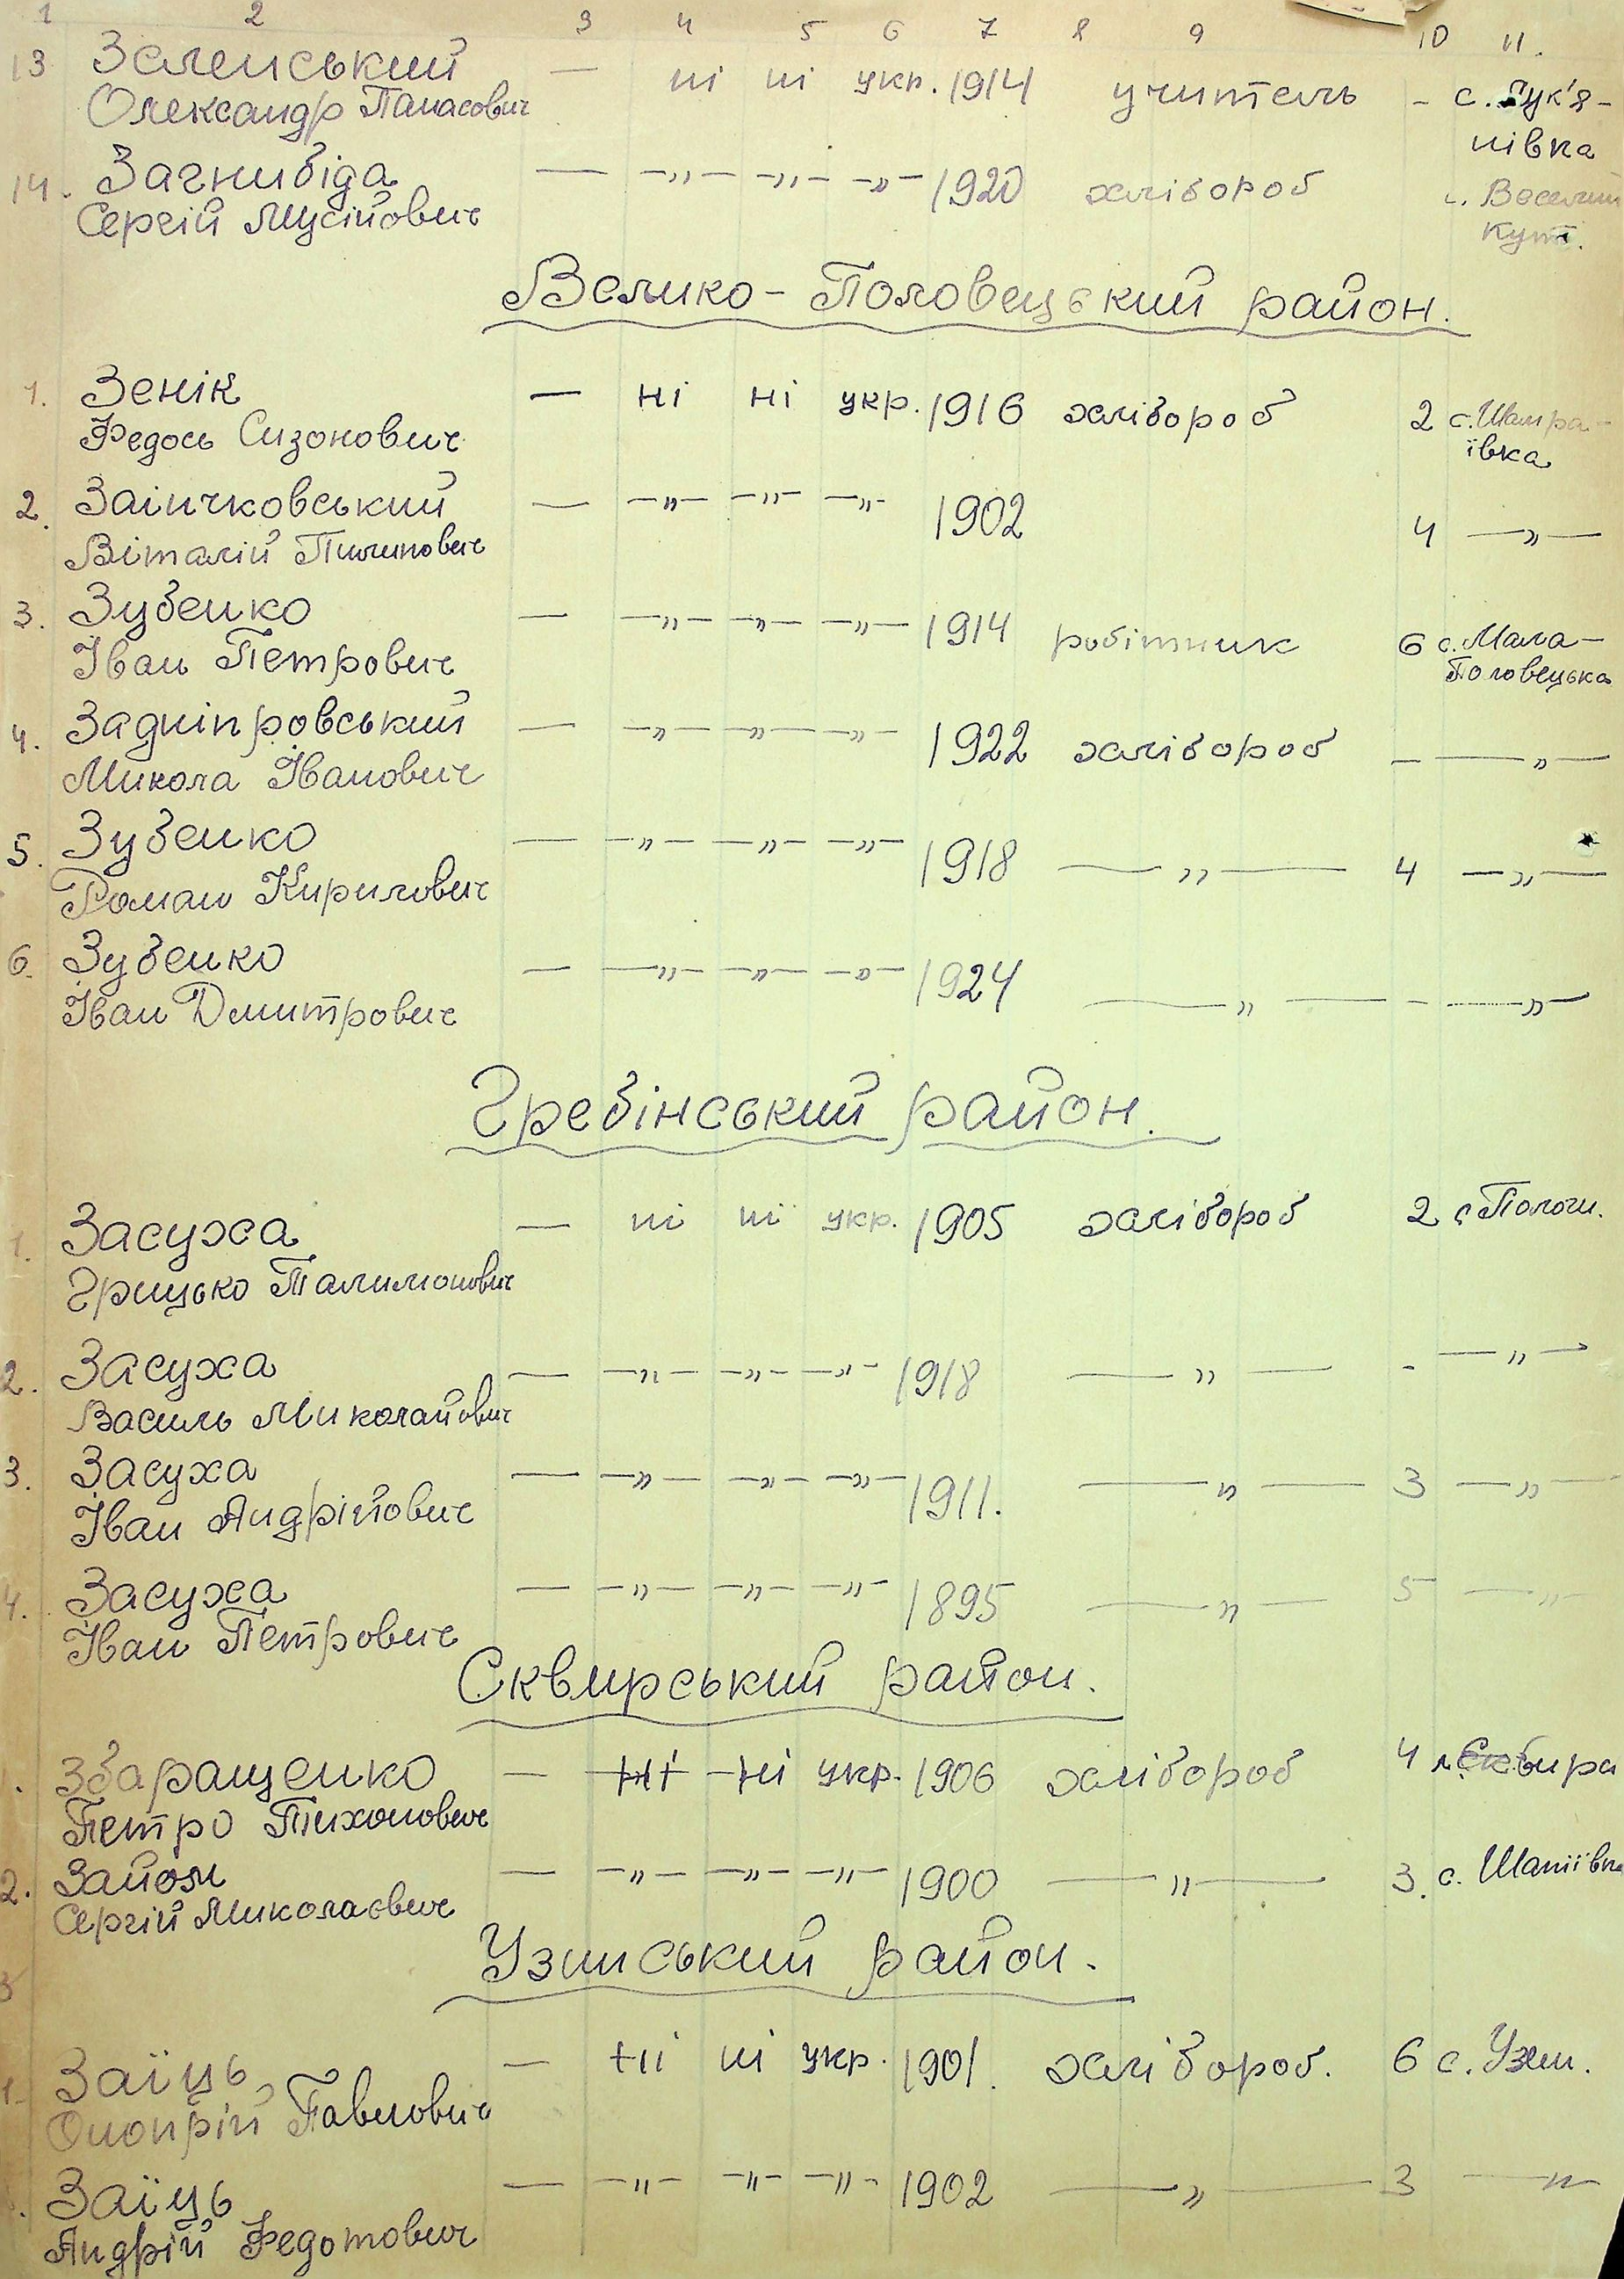 1 2 3 4 5 6 7 8 9 10 11.
13 Зеленський — ні ні укр. 1914 учитель - с. Лук'я-
Олександр Панасович нівка
14. Загнибіда — —„— —„— —„— 1920 хлібороб с. Веселий
Сергій Мусійович Кут.
Велико-Половецький район.
1. Зенік — ні ні укр. 1916 хлібороб 2 с. Шамра-
Федось Сизонович ївка
2. Заінчковський — —„— —„— —„— 1902 4 —„—
Віталій Пилипович
3. Зубенко — —„— —„— —„— 1914 робітник 6 с. Мала-
Іван Петрович Половецька
4. Задніпровський — —„— —„— —„— 1922 хлібороб — —„—
Микола Іванович
5. Зубенко — —„— —„— —„— 1918 —„— 4 —„—
Роман Кирилович
6. Зубенко — —„— —„— —„— 1924 —„— - —„—
Іван Дмитрович
Гребінський район.
1. Засуха — ні ні укр. 1905 хлібороб 2 с Пологи.
Грицько Палимонович
2. Засуха — —„— —„— —„— 1918 —„— - —„—
Василь Миколайович
3. Засуха — —„— —„— —„— 1911. —„— 3 —„—
Іван Андрійович
4. Засуха — —„— —„— —„— 1895 —„— 5 —„—
Іван Петрович
Сквирський район.
1. Збаращенко — ні ні укр. 1906 хлібороб 4 м. Сквира
Петро Тихонович
2. — —„— —„— —„— 1900 —„— 3. с. Шапіївка
Сергій Миколаєвич
Узинський район.
1. Заїць — ні ні укр. 1901. хлібороб. 6 с. Узин.
Онопрій Павлович
Заїць — —„— —„— —„— 1902 —„— 3 —„—
Андрій Федотович